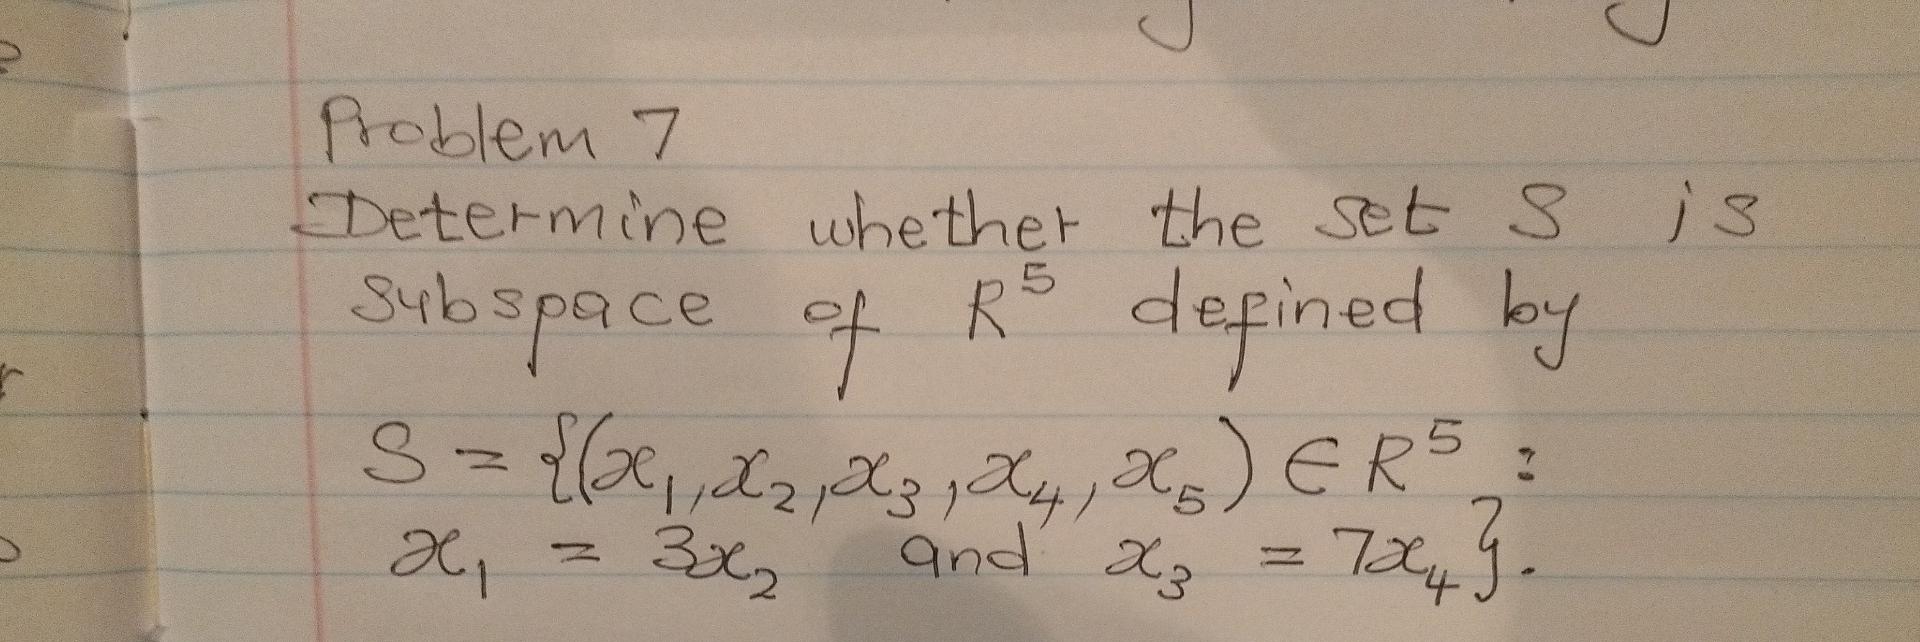 Problem 7
Determine whether the set S is
subspace of R⁵ defined by
S = {(x₁, x₂, x₃, x₄, x₅) ∈ R⁵ :
x₁ = 3x₂ and x₃ = 7x₄}.